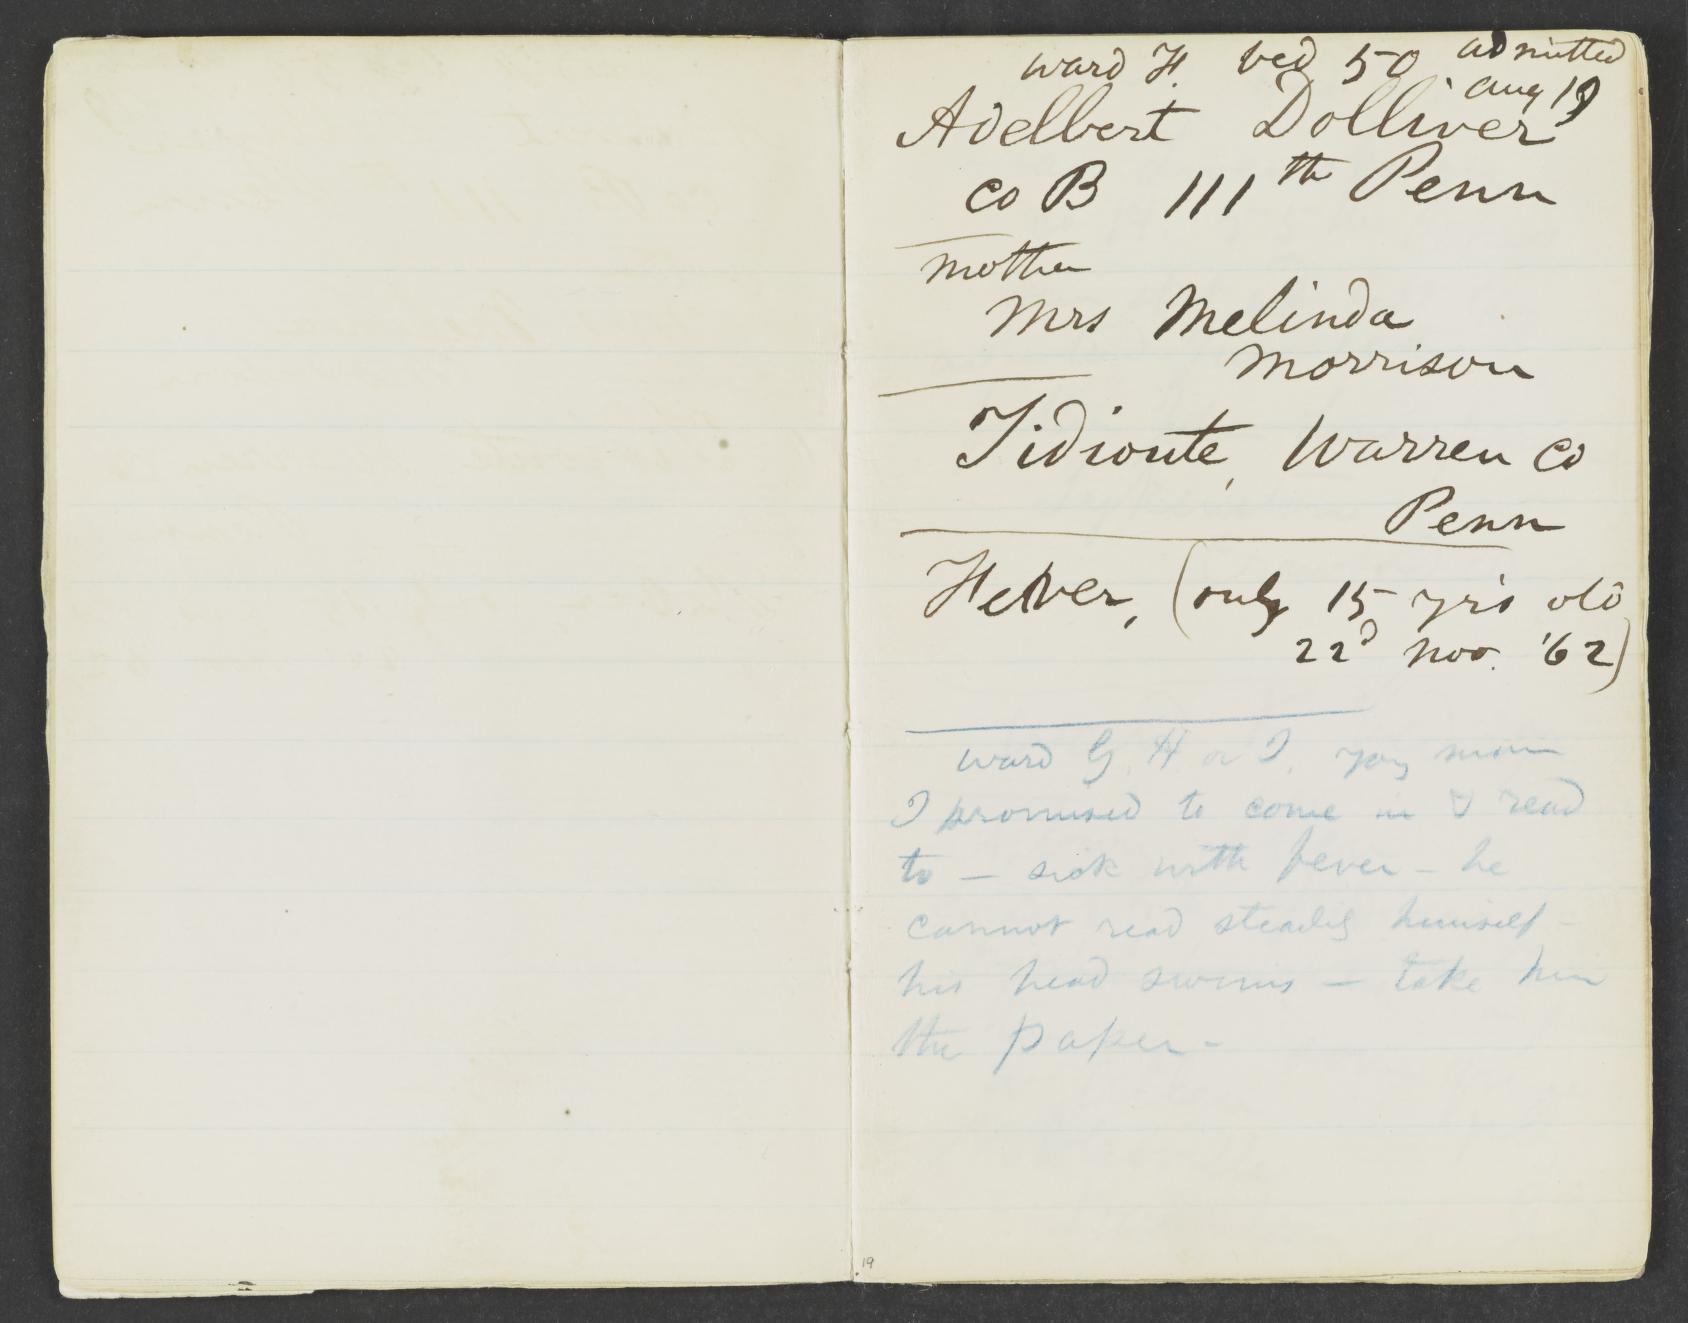 ward F. bed 50 admitted
aug 19
Adelbert Dolliver
co B 111th Penn
mother
Mrs Melinda
Morrison
Tidioute, Warren Co
Penn
Fever, (only 15 yrs old
22d Nov. '62)
ward G. H or I. yng man
I promised to come in & read
to — sick with fever — he
cannot read steadily himself —
his head swims — take him
the paper —
19